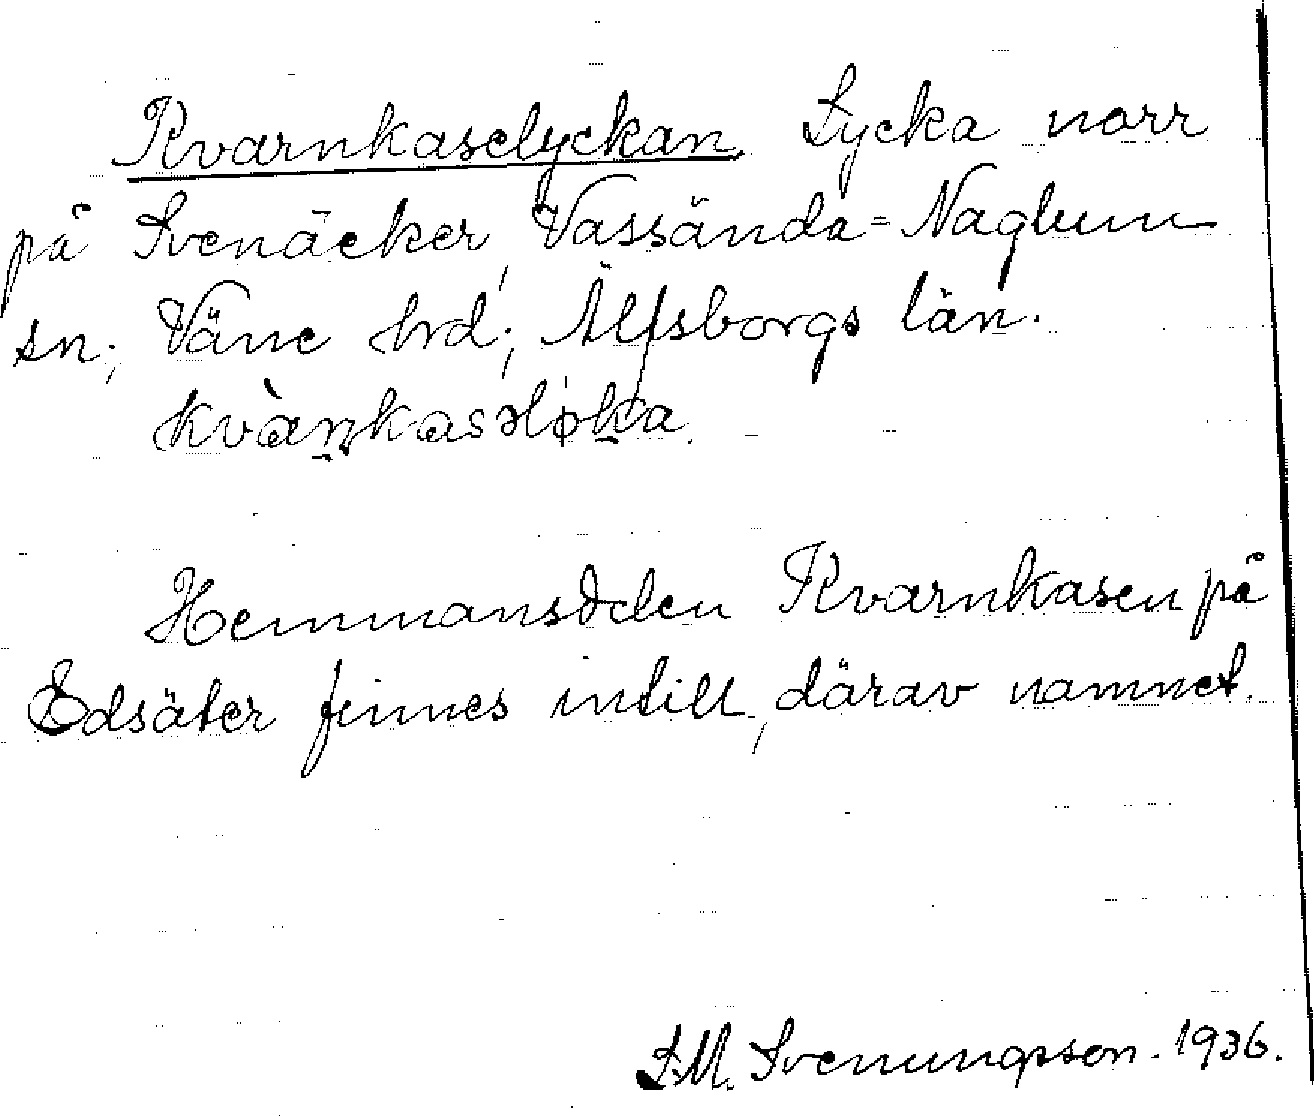 Kvarnkaselyckan, Lycka norr
på Svenäcker, Vassända-Naglum
sn., Väne hrd., Älfsborgs län.
kvànkasəløka.
Hemmansdelen Kvarnkasen på
Edsäter finnes intill, därav namnet.
S.M. Svenungsson. 1936.